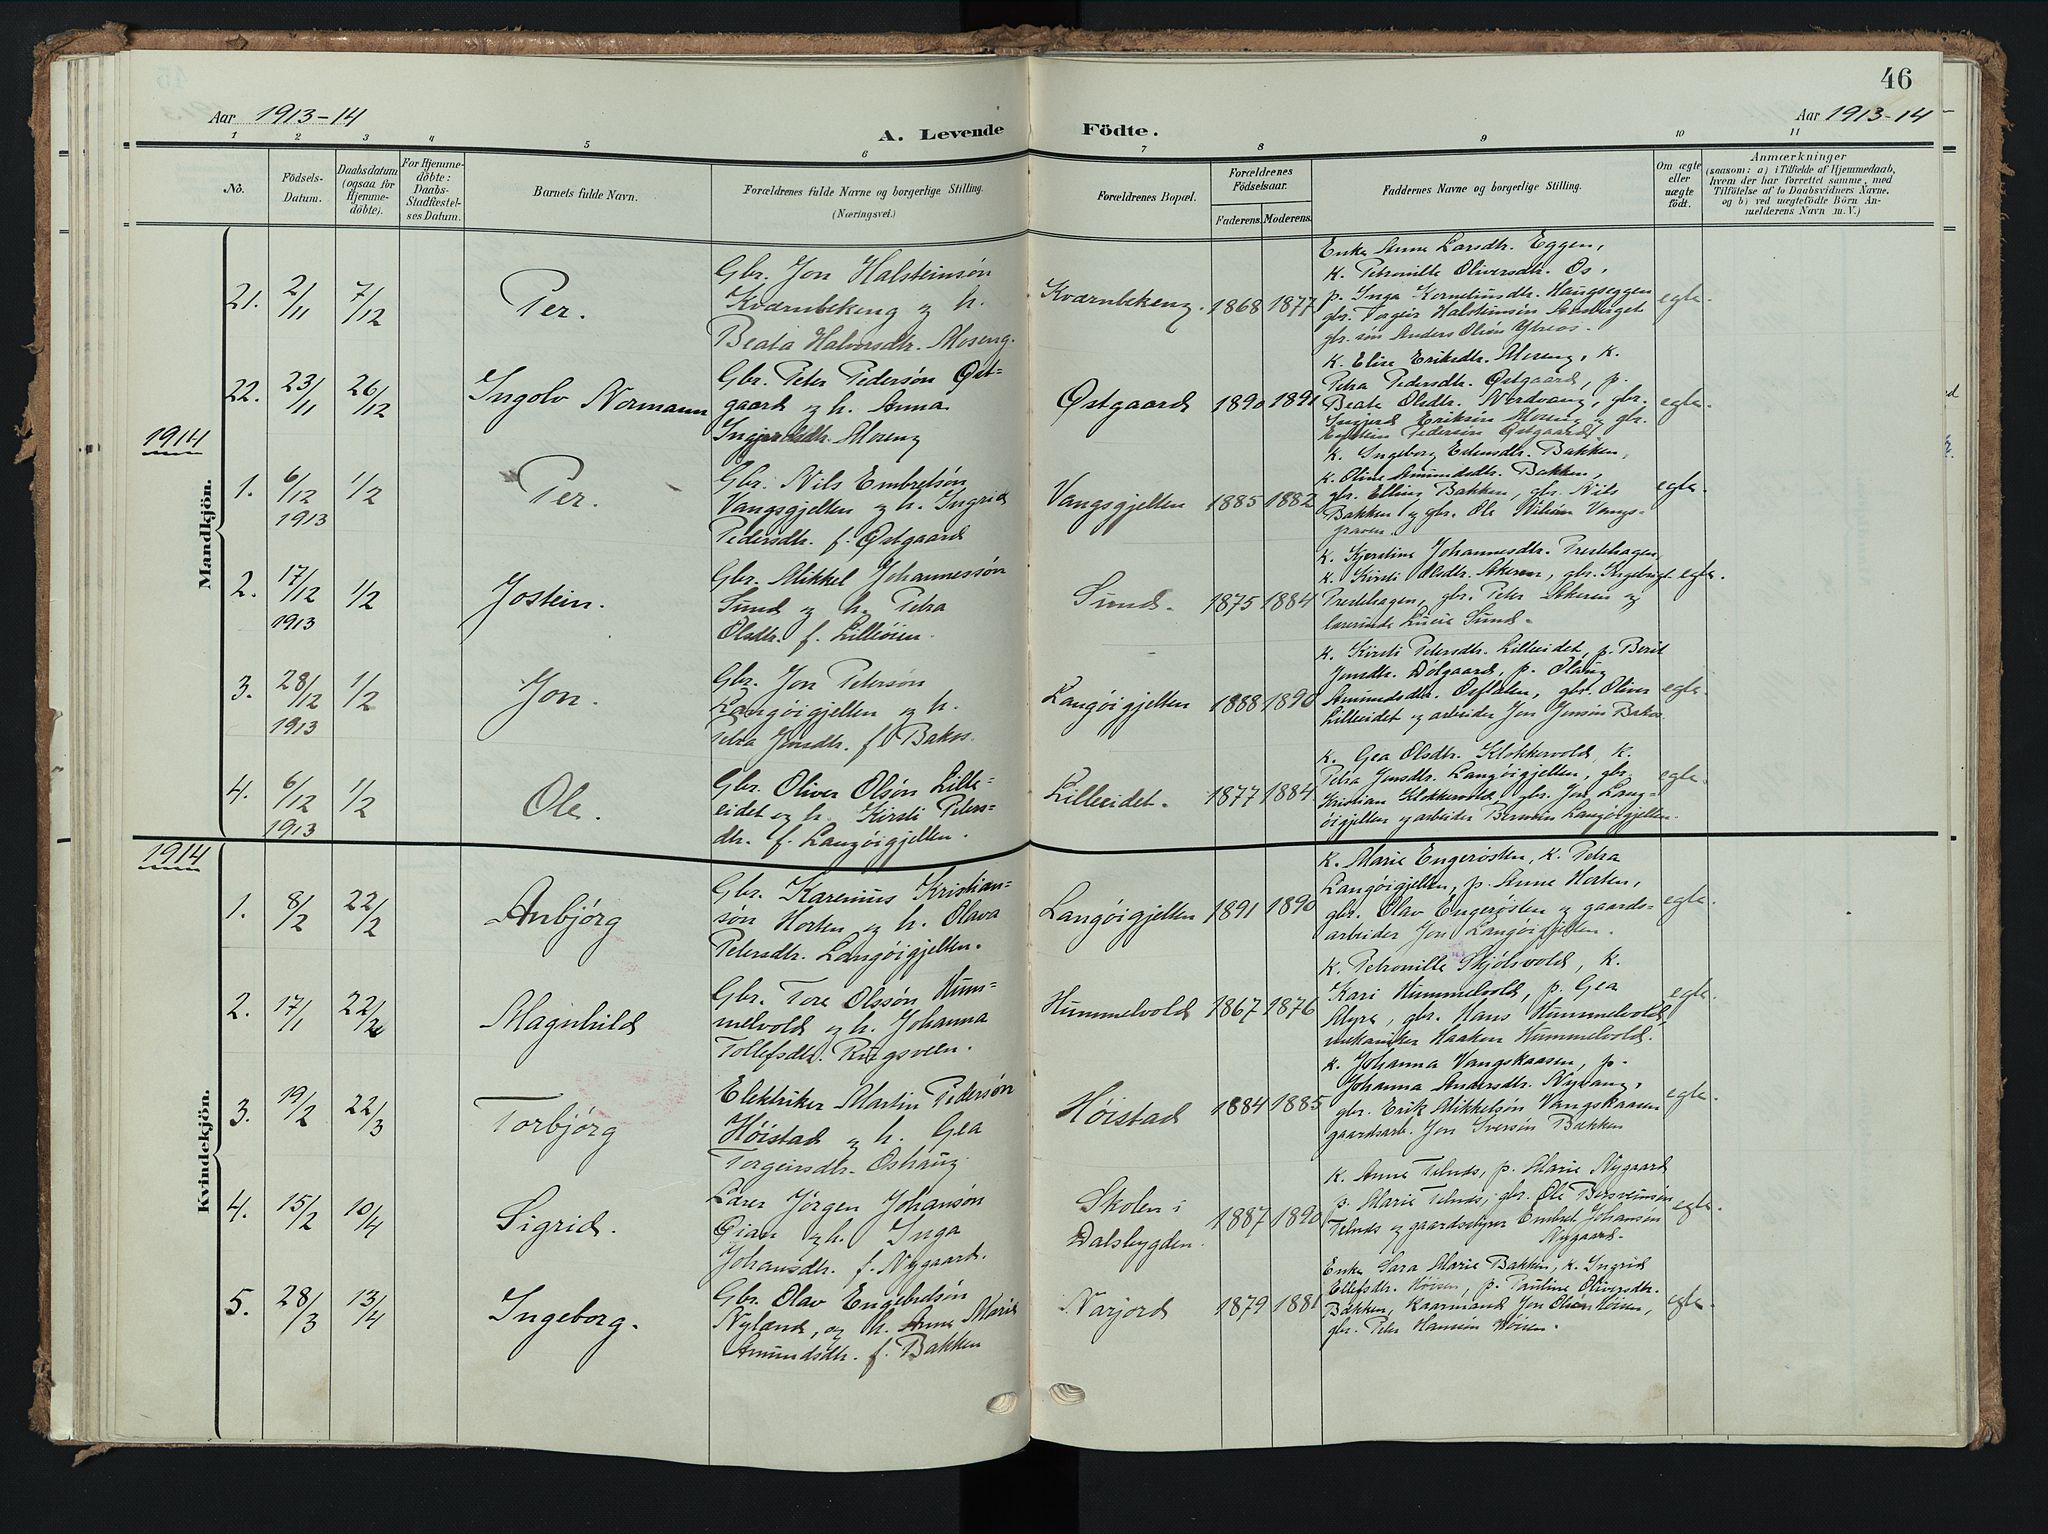 46
Aar 1913-14
A. Levende Födte.
Aar 1913-14
1 2 3 4 5 6 7 8 9 10 11
No.
Födsels-
Datum.
Daabsdatum
(ogsaa for
Hjemme-
döbte).
For Hjemme-
döbte:
Daabs-
Stadfæstel-
ses Datum.
Barnets fulde Navn.
Forældrenes fulde Navne og borgerlige Stilling.
(Næringsvei.)
Forældrenes Bopæl.
Forældrenes
Födselsaar.
Faderens. Moderens.
Faddernes Navne og borgerlige Stilling.
Om ægte
eller
uægte
født.
Anmærkninger
(saasom: a) i Tilfælde af Hjemmedaab,
hvem der har forrettet samme, med
Tilföielse af to Daabsvidners Navne,
og b) ved uægtefödte Börn An-
melderens Navn m.V.)
Mandkjön.
21. 2/11 7/12 Per.
Gbr. Jon Halsteinsøn
Kværnbekeng og h.
Beata Halvorsdtr. Moseng.
Kværnbekeng. 1868 1877
Enke Anne Larsdtr. Eggen,
k. Petronille Oliversdtr. Os,
p. Inga Korneliusdtr. Haugseggen
gbr. Torgeir Halsteinsøn
gbr. søn Anders Olsøn Ydreos.
egte.
22. 23/11 26/12 Ingolv Normann
Gbr. Peter Pedersøn Øst-
gaard og h. Anna
Ingjersdtr. Moseng
Østgaard 1890 1891
k. Elise Eriksdtr. Moseng, k.
Petra Pedersdtr. Østgaard, p.
Beate Olsdtr. Nordvang, gbr.
Eriksøn Moseng og gbr.
Pedersøn Østgaard
egte.
1914
1. 6/12 1913 1/2 Per.
Gbr. Nils Embretsøn
Vangsgjelten og h. Ingrid
Pedersdtr. f. Østgaard
Vangsgjelten 1885 1882
k. Ingeborg Estensdtr. Bakken,
k. Oline Amundsdtr. Bakken,
gbr. Elling Bakken, gbr. Nils
Bakken og gbr. Ole Nilsøn Vangs-
graven.
egte.
2. 17/12 1913 1/2 Jostein.
Gbr. Mikkel Johannessøn
Sund og h. Petra
Olsdtr. f. Lilleøien.
Sund. 1875 1884
k. Kjerstine Johannesdtr. Prestehagen,
k. Kirsti Olsdtr. Akeren, gbr. Ingebrigt
Prestehagen, gbr. Peter Akeren og
lærerinde Lucie Sund.
egte.
3. 28/12 1913 1/2 Jon.
Gbr. Jon Petersøn
Langøigjelten og h.
Petra Jonsdtr. f. Bakos.
Langøigjelten 1888 1890
k. Kirsti Petersdtr. Lilleeidet, p. Berit
Jonsdtr. Dølgaard, p. Olaug
Amundsdtr. Osflaten, gbr. Oliver
Lilleeidet og arbeider Jon Jonsøn Bakos.
egte.
4. 6/12 1913 1/2 Ole.
Gbr. Oliver Olsøn Lille-
eidet og h. Kirsti Peters-
dtr. f. Langøigjelten.
Lilleeidet. 1877 1884
k. Gea Olsdtr. Klokkervold, k.
Petra Jonsdtr. Langøigjelten, gbr.
Kristian Klokkervold, gbr. Jon Lang-
øigjelten og arbeider Langøigjelten.
egte.
Kvindekjön.
1914
1. 8/2 22/2 Anbjørg
Gbr. Karenius Kristian-
søn Horten og h. Olava
Petersdtr. Langøigjelten.
Langøigjelten 1891 1890
k. Marie Engerøsten, k. Petra
Langøigjelten, p. Anne Horten,
gbr. Olav Engerøsten og gaards-
arbeider Jon Langøigjelten.
egte.
2. 17/1 22/2 Magnhild
Gbr. Tore Olssøn Hum-
melvold og h. Johanna
Tollefsdtr. Ringsveen.
Hummelvold 1867 1876
k. Petronille Skjølsvold, k.
Kari Hummelvold, p. Gea
Myre, gbr. Hans Hummelvold,
mekaniker Haaken Hummelvold.
egte.
3. 19/2 22/3 Torbjørg
Elektriker Martin Pedersøn
Høistad og h. Gea
Torgeirsdtr. Oshaug.
Høistad 1884 1885
k. Johanna Vangskaasen, p.
Johanna Andersdtr. Nyvang,
gbr. Erik Mikkelsøn Vangskaasen
gaardsarb. Jon Iversøn Bakken
egte.
4. 15/2 10/4 Sigrid.
Lærer Jørgen Johansøn
Øian og h. Inga
Johansdtr. f. Nygaard.
Skolen i
Dalsbygden. 1887 1890
k. Anne Telnes, p. Marie Nygaard
p. Marie Telnes, gbr. Ole Bersveinsøn
Telnes og gaardsstyrer Embret Johansøn
Nygaard.
egte.
5. 28/3 13/4 Ingeborg.
Gbr. Olav Engebretsøn
Nyland, og h. Anne Marie
Amundsdtr. f. Bakken
Narjord 1879 1881
Enke Sara Marie Bakken, k. Ingrid
Ellefsdtr. Høien, p. Pauline Olivrsdtr.
Bakken, Kaarmand Jon Olsøn Høien,
gbr. Peter Hansøn Høien.
egte.